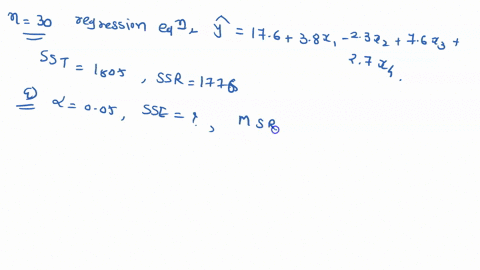 n=30 regression eqⁿ, ŷ = 17.6 + 3.8x₁ - 2.3x₂ + 7.6x₃ +
2.7x₄.
SST = 1805, SSR = 1776
α = 0.05, SSE = ?, MSR